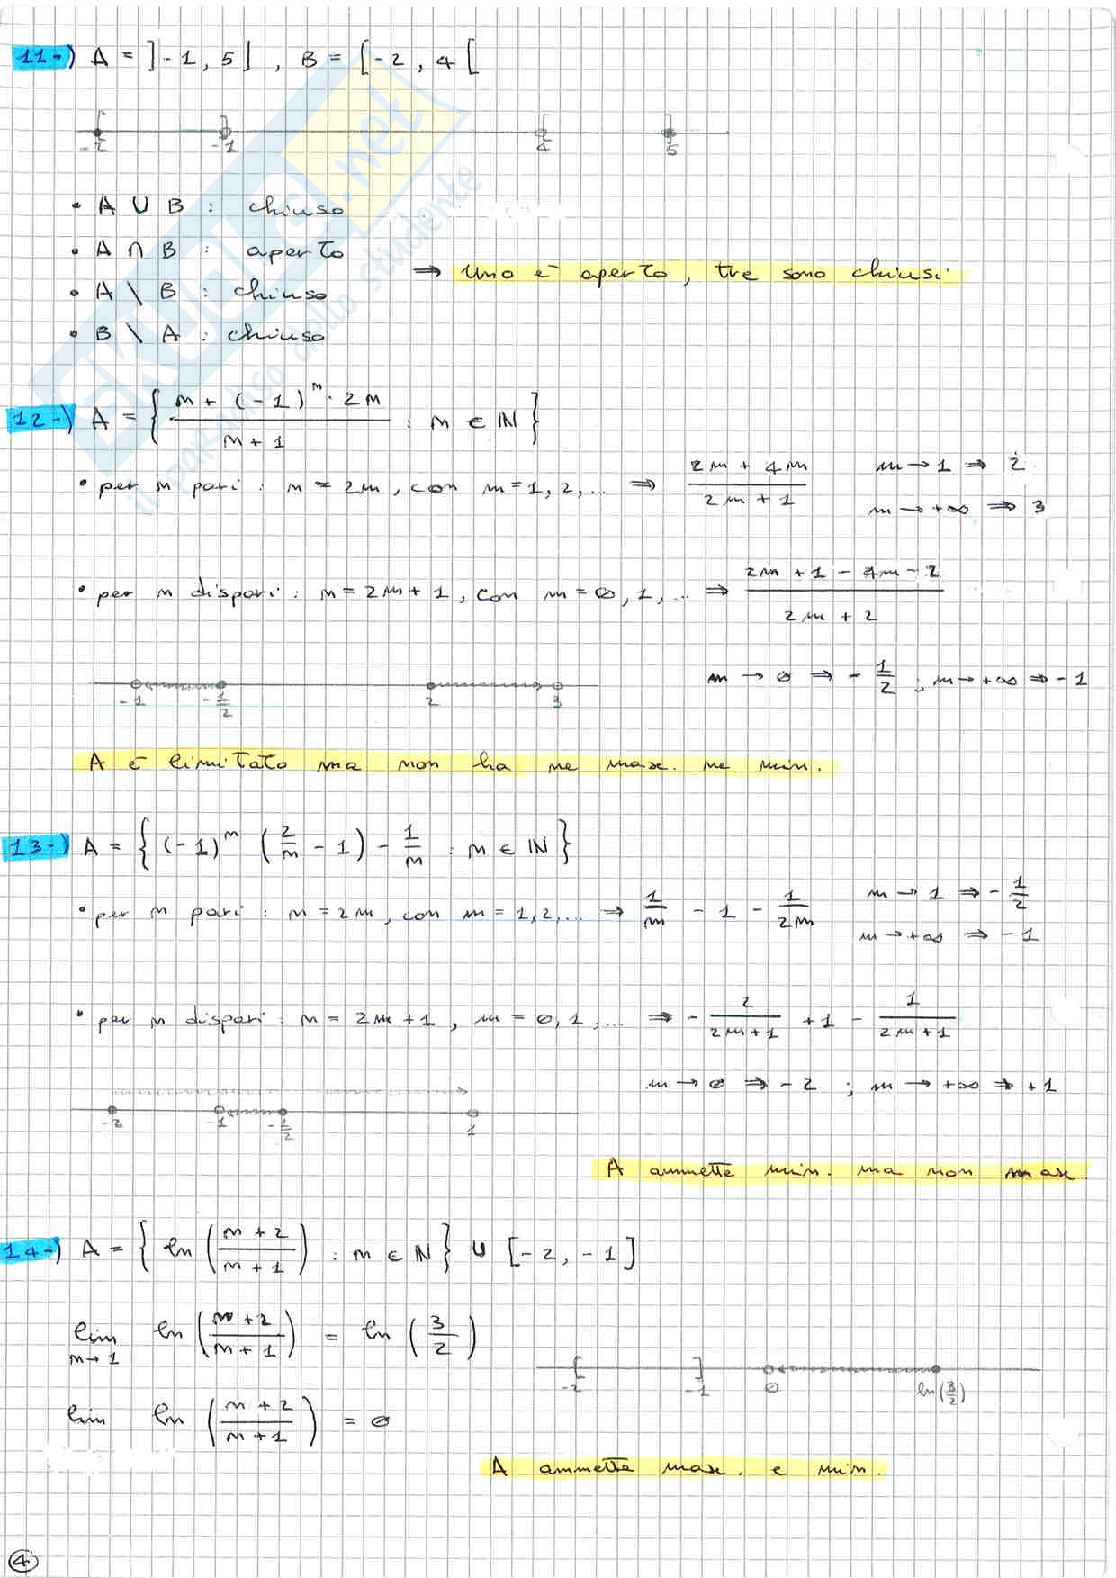 11-) A = ]-1, 5] , B = [-2, 4[
-2 -1 4 5
• A ∪ B : chiuso
• A ∩ B : aperto
⇒ uno è aperto, tre sono chiusi.
• A \ B : chiuso
• B \ A : chiuso
12-) A = { (n + (-1)^n · 2n) / (n + 1) : n ∈ ℕ }
• per n pari : n = 2m, con m = 1, 2, ... ⇒ (2m + 4m) / (2m + 1) m → 1 ⇒ 2
m → +∞ ⇒ 3
• per n dispari : n = 2m + 1, con m = 0, 1, ... ⇒ (2m + 1 - 4m - 2) / (2m + 2)
m → 0 ⇒ - 1/2 ; m → +∞ ⇒ -1
-1 -1/2 2 3
A è limitato ma non ha ne max. ne min.
13-) A = { (-1)^n (2/n - 1) - 1/n : n ∈ ℕ }
• per n pari : n = 2m, con m = 1, 2, ... ⇒ 1/m - 1 - 1/2m m → 1 ⇒ - 1/2
m → +∞ ⇒ -1
• per n dispari : n = 2m + 1, m = 0, 1, ... ⇒ - 2/(2m + 1) + 1 - 1/(2m + 1)
m → 0 ⇒ -2 ; m → +∞ ⇒ +1
-2 -1 -1/2 1
A ammette min. ma non max
14-) A = { ln ((n + 2)/(n + 1)) : n ∈ ℕ } ∪ [-2, -1]
lim n→1 ln ((n + 2)/(n + 1)) = ln (3/2)
-2 -1 0 ln(3/2)
lim ln ((n + 2)/(n + 1)) = 0
A ammette max. e min.
4